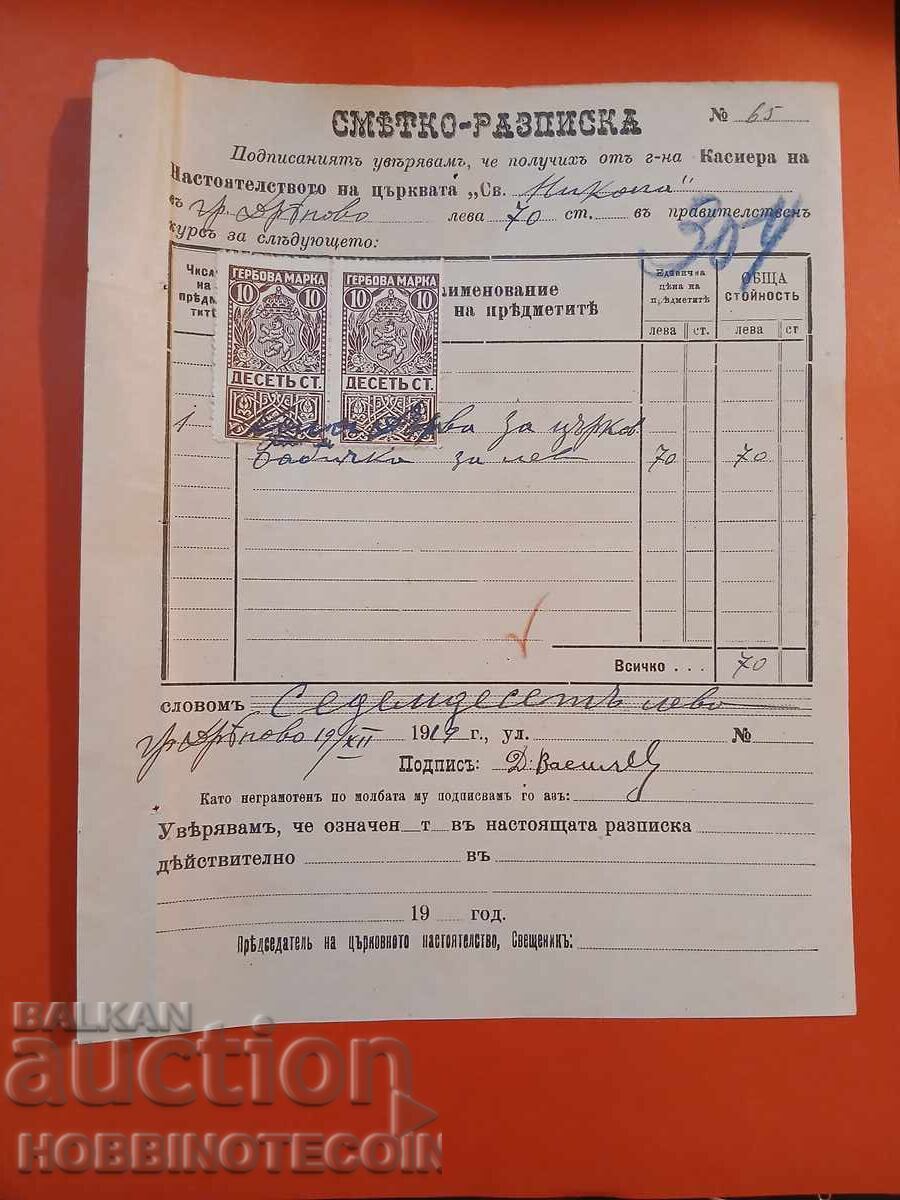 СМѢТКО-РАЗПИСКА
№ 65
Подписаниятъ увѣрявамъ, че получихъ отъ г-на Касиера на
Настоятелството на църквата „Св. Никола"
въ гр. Дрѣново лева 70 ст. въ правителственъ
курсъ за слѣдующето:
304
Числ
на
прѣдм
титѣ
именование
на прѣдметитѣ
Единична
цѣна на
прѣдметитѣ
ОБЩА
СТОЙНОСТЬ
лева ст. лева ст
ГЕРБОВА МАРКА ГЕРБОВА МАРКА
10 10 10 10
ДЕСЕТЬ СТ. ДЕСЕТЬ СТ.
1 дърва за църков
за лев 70 70
Всичко . . . 70
словомъ Седемдесетъ лева
гр. Дрѣново 19/XII 1919 г., ул. №
Подписъ: Д. Василев
Като неграмотенъ по молбата му подписвамъ го азъ:
Увѣрявамъ, че означен т въ настоящата разписка
дѣйствително въ
19 год.
Прѣдседатель на църковното настоятелство, Свещеникъ:
BALKAN
auction
HOBBINOTECOIN